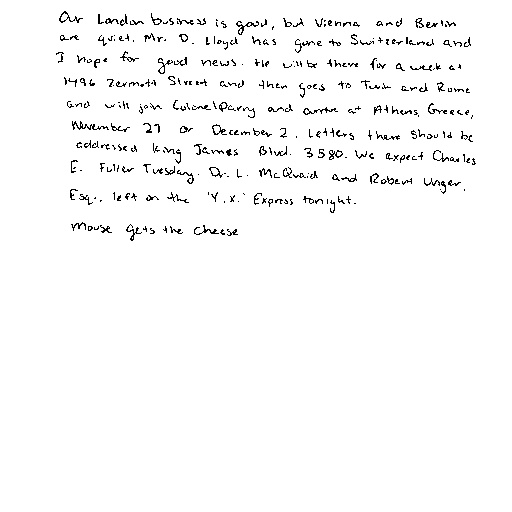 Our London business is good, but Vienna and Berlin
are quiet. Mr. D. Lloyd has gone to Switzerland and
I hope for good news. He will be there for a week at
1496 Zermott Street and then goes to Turin and Rome
and will join Colonel Parry and arrive at Athens, Greece,
November 27 or December 2. Letters there should be
addressed King James Blvd. 3580. We expect Charles
E. Fuller Tuesday. Dr. L. McQuaid and Robert Unger,
Esq., left on the 'Y.X.' Express tonight.
Mouse gets the cheese